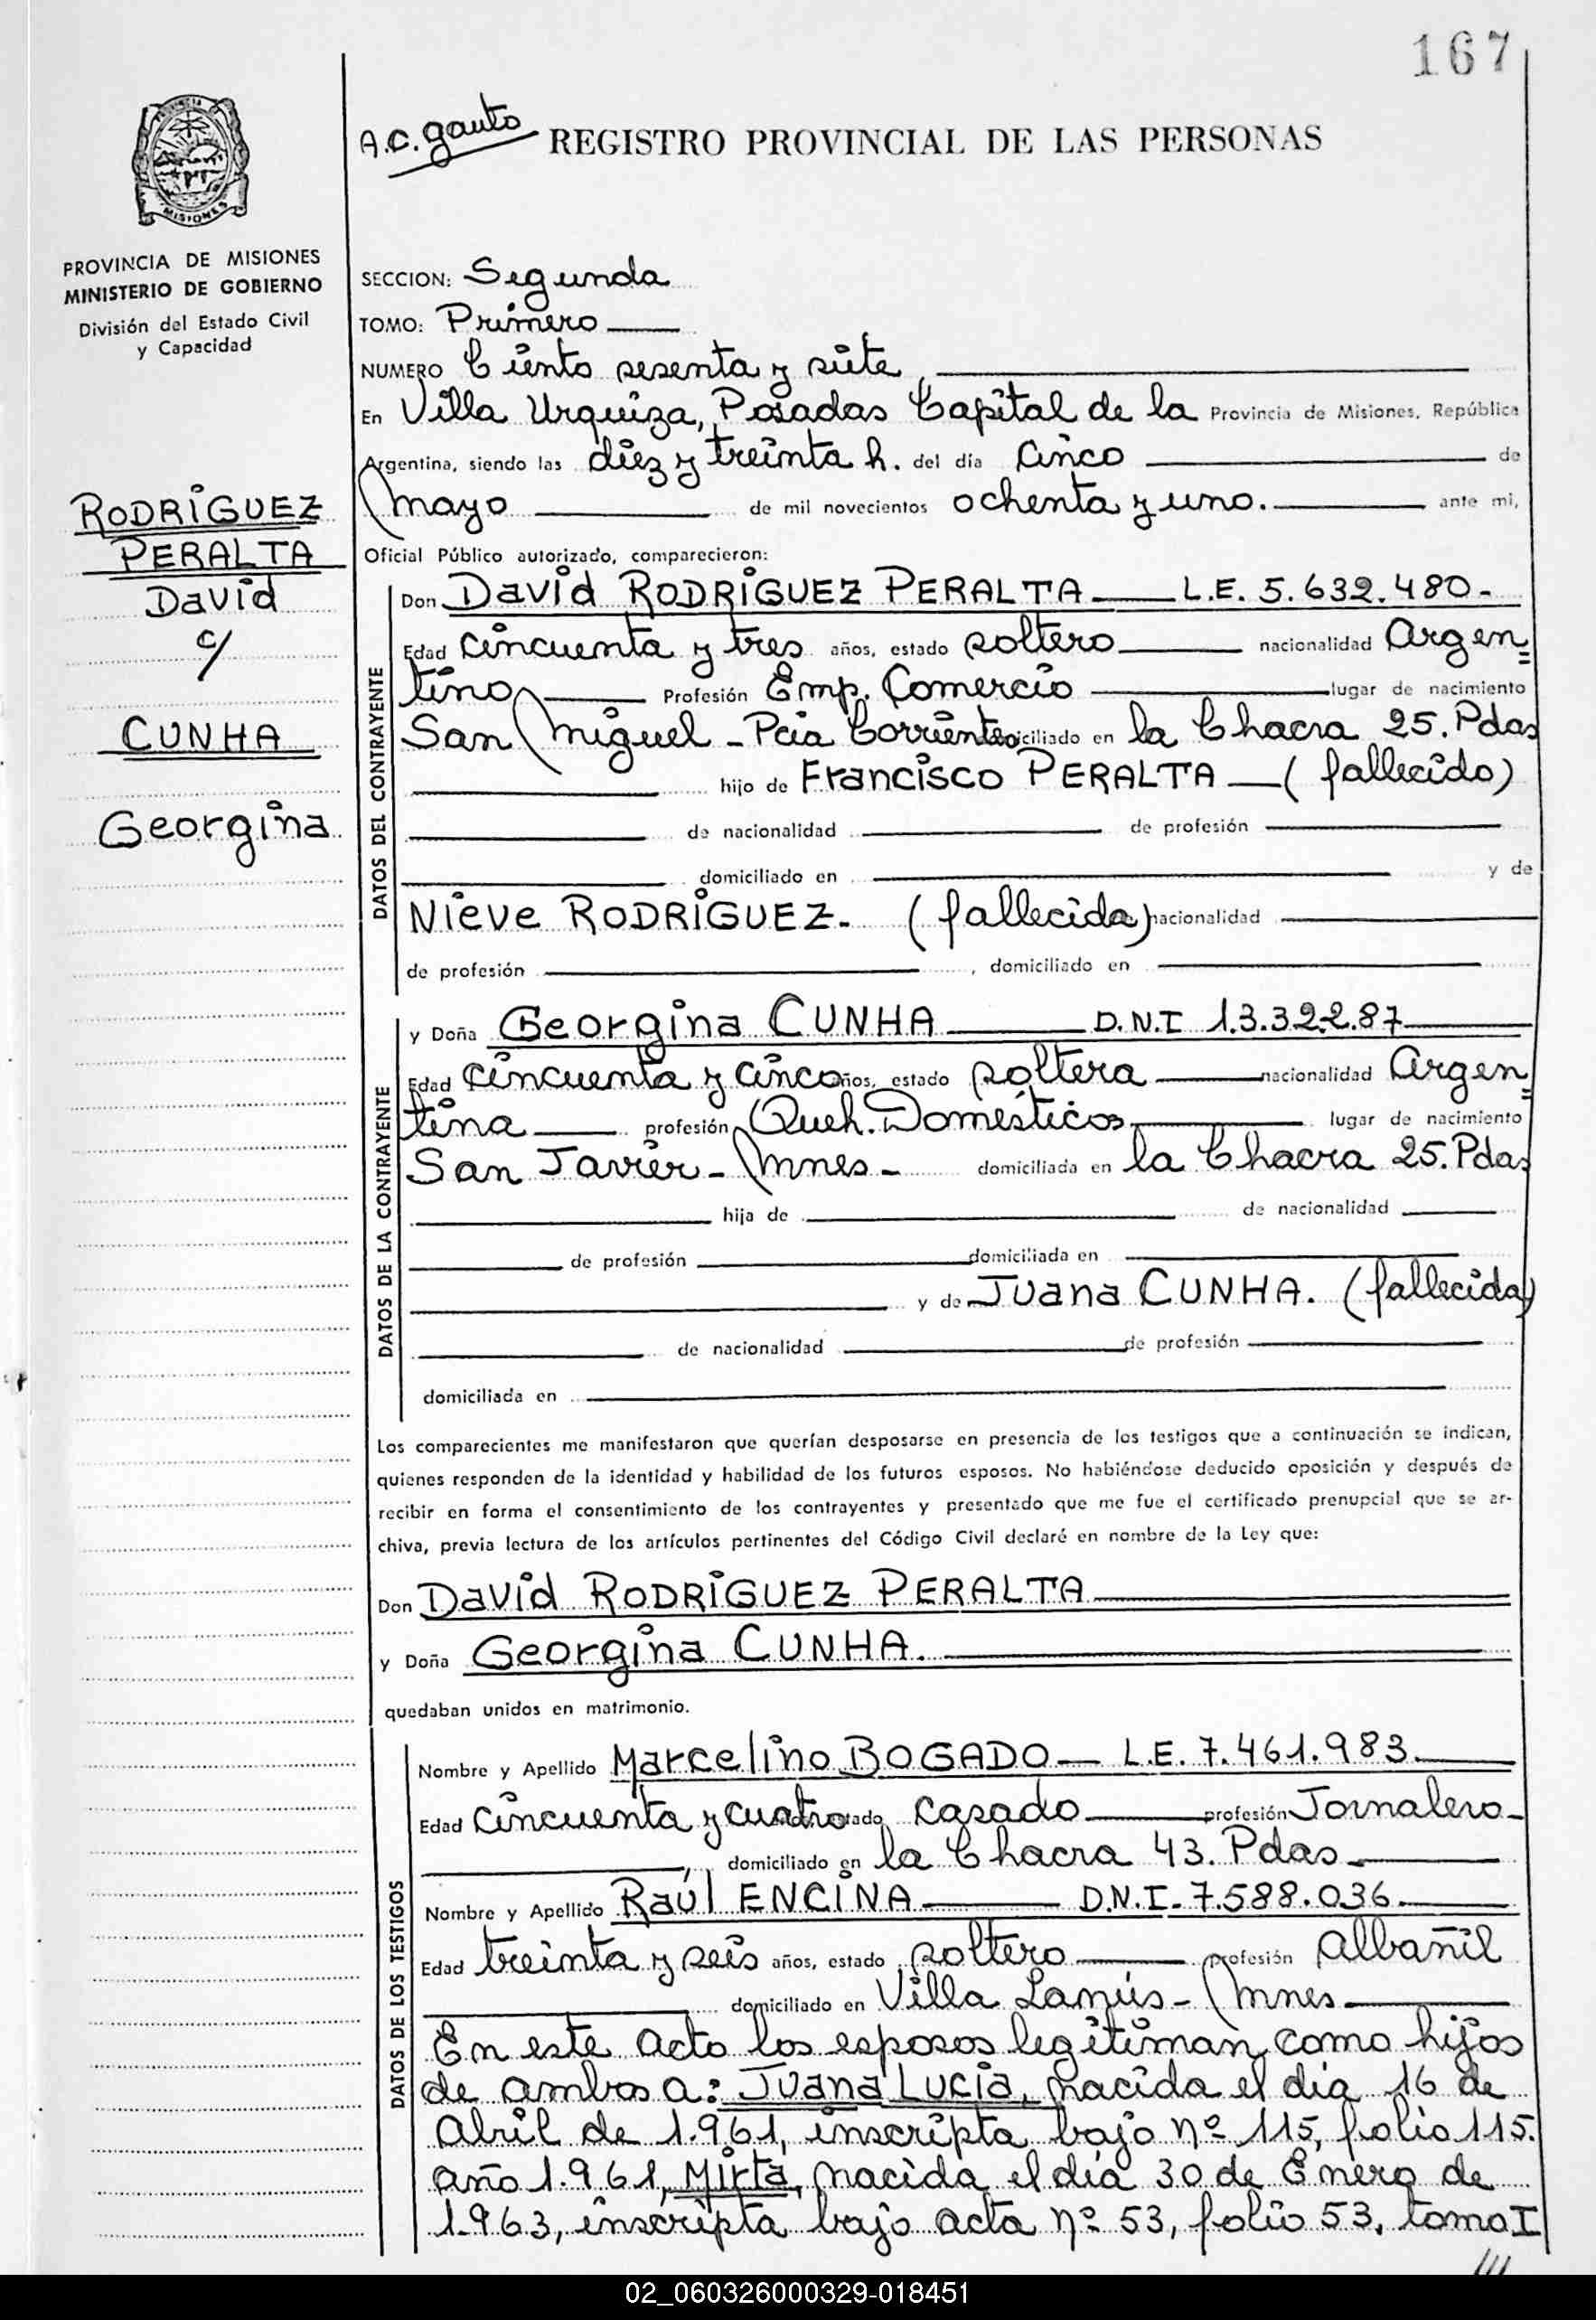 167
A.C. Gauto
REGISTRO PROVINCIAL DE LAS PERSONAS
MISIONES
PROVINCIA DE MISIONES
MINISTERIO DE GOBIERNO
División del Estado Civil
y Capacidad
SECCION: Segunda
TOMO: Primero
NUMERO Ciento sesenta y siete
En Villa Urquiza, Posadas Capital de la Provincia de Misiones, República
Argentina, siendo las diez y treinta h. del día cinco de
mayo de mil novecientos ochenta y uno. ante mi,
Oficial Público autorizado, comparecieron:
RODRÍGUEZ
PERALTA
David
c/
CUNHA
Georgina
DATOS DEL CONTRAYENTE
Don David RODRÍGUEZ PERALTA L.E. 5.632.480-
Edad cincuenta y tres años, estado soltero nacionalidad Argen
tino Profesión Emp. Comercio lugar de nacimiento
San Miguel - Pcia Corrientes domiciliado en la Chacra 25. Pdas
hijo de Francisco PERALTA (fallecido)
de nacionalidad de profesión
domiciliado en y de
Nieve RODRÍGUEZ- (fallecida) nacionalidad
de profesión , domiciliado en
DATOS DE LA CONTRAYENTE
y Doña Georgina CUNHA D.N.I 13.322.87
Edad cincuenta y cinco años, estado soltera nacionalidad Argen
tina profesión Queh. Domésticos lugar de nacimiento
San Javier - Mnes - domiciliada en la Chacra 25. Pdas
hija de de nacionalidad
de profesión domiciliada en
y de Juana CUNHA. (fallecida)
de nacionalidad de profesión
domiciliada en
Los comparecientes me manifestaron que querían desposarse en presencia de los testigos que a continuación se indican,
quienes responden de la identidad y habilidad de los futuros esposos. No habiéndose deducido oposición y después de
recibir en forma el consentimiento de los contrayentes y presentado que me fue el certificado prenupcial que se ar-
chiva, previa lectura de los artículos pertinentes del Código Civil declaré en nombre de la Ley que:
Don David RODRÍGUEZ PERALTA
y Doña Georgina CUNHA.
quedaban unidos en matrimonio.
DATOS DE LOS TESTIGOS
Nombre y Apellido Marcelino BOGADO - L.E. 7.461.983.
Edad cincuenta y cuatro estado casado profesión Jornalero -
domiciliado en la Chacra 43. Pdas -
Nombre y Apellido Raúl ENCINA D.N.I - 7.588.036.
Edad treinta y seis años, estado soltero profesión Albañil
domiciliado en Villa Lanús - Mnes
En este acto los esposos legitiman como hijos
de ambos a: Juana Lucía, nacida el día 16 de
Abril de 1.961, inscripta bajo nº 115, folio 115.
año 1.961, Mirta, nacida el día 30 de Enero de
1.963, inscripta bajo acta nº 53, folio 53, tomo I
///
02_060326000329-018451